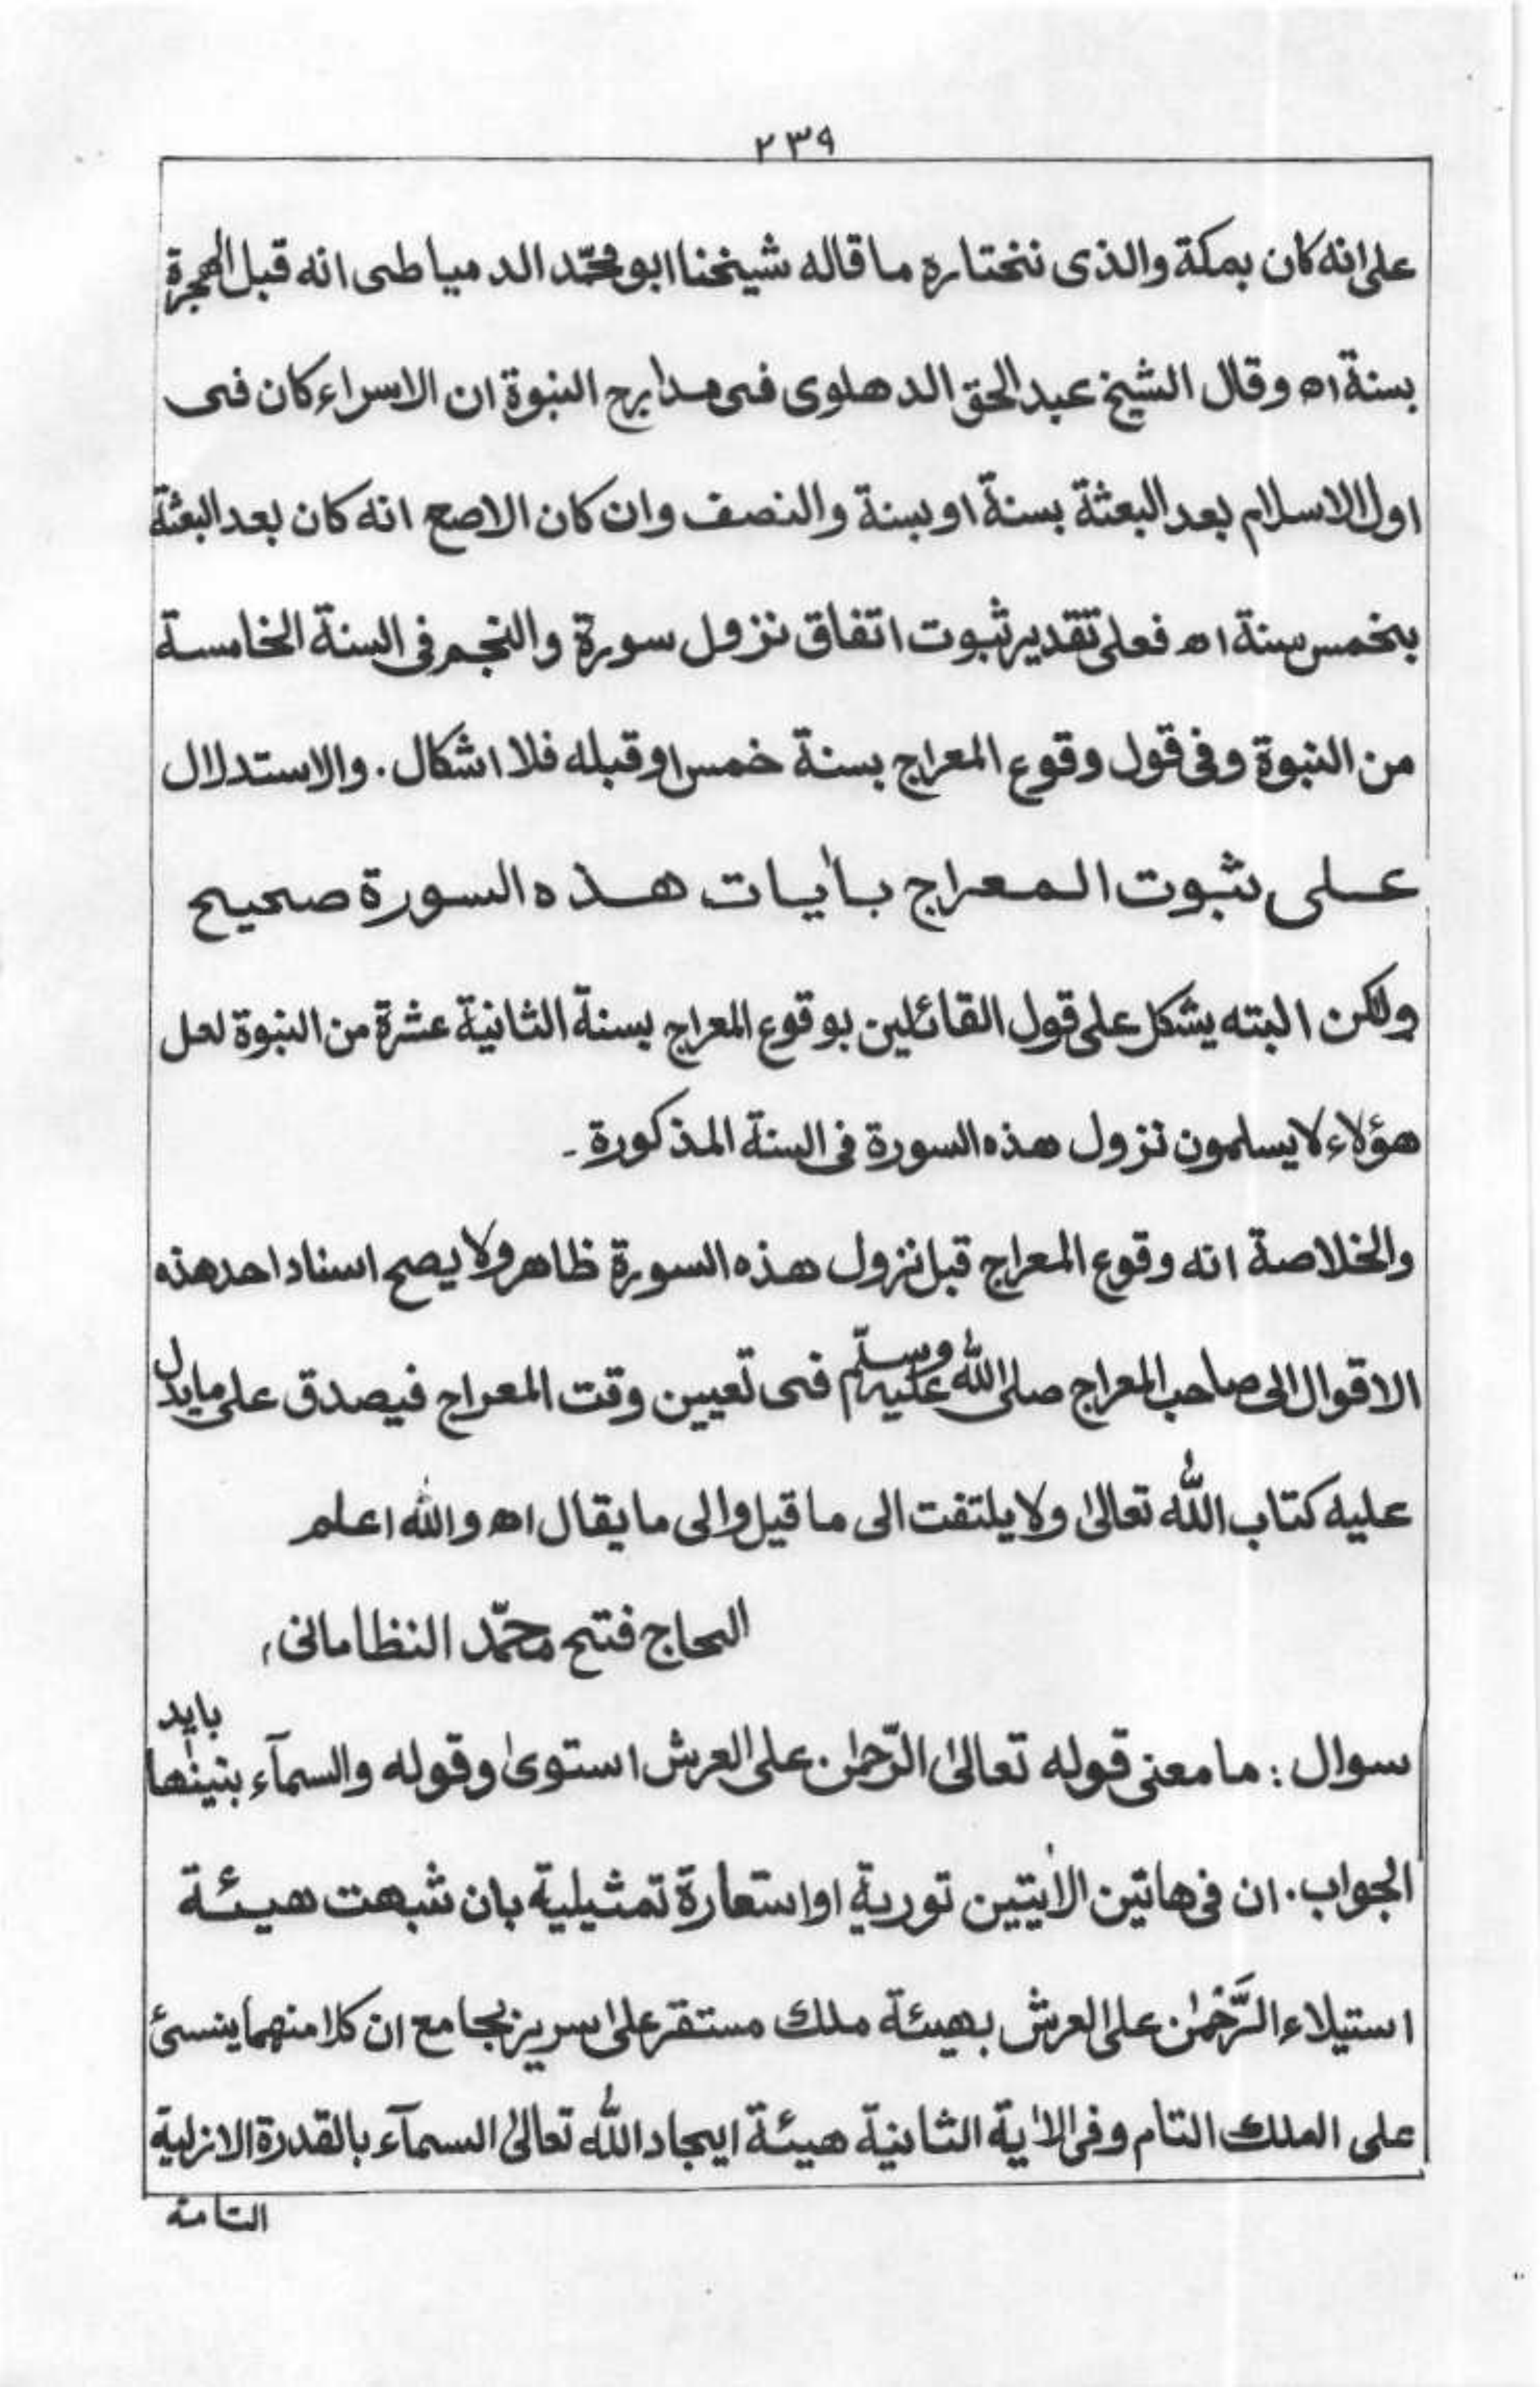 ٢٣٩
على انه كان بمكة والذى نختاره ما قاله شيخنا ابو محمّد الدمياطى انه قبل الهجرة
بسنة اه وقال الشيخ عبد الحق الدهلوى فى مدارج النبوة ان الاسراء كان فى
اول الاسلام بعد البعثة بسنة او بسنة والنصف وان كان الاصح انه كان بعد البعثة
بخمس سنة اه فعلى تقدير ثبوت اتفاق نزول سورة والنجم فى السنة الخامسة
من النبوة وفى قول وقوع المعراج بسنة خمس او قبله فلا اشكال. والاستدلال
على ثبوت المعراج بأيات هذه السورة صحيح
ولكن البته يشكل على قول القائلين بوقوع المعراج بسنة الثانية عشرة من النبوة لعل
هؤلاء لا يسلمون نزول هذه السورة فى السنة المذكورة۔
والخلاصة انه وقوع المعراج قبل نزول هذه السورة ظاهر ولا يصح اسناد احد هذه
الاقوال الى صاحب المعراج صلى الله عليه وسلّم فى تعيين وقت المعراج فيصدق على ما يدل
عليه كتاب الله تعالىٰ ولا يلتفت الى ما قيل والى ما يقال اه والله اعلم
الحاج فتح محمّد النظامانى،
سوال: ما معنى قوله تعالىٰ الرّحمٰن على العرش استوىٰ وقوله والسمآء بنينٰها بايد
الجواب. ان فى هاتين الأيتين تورية او استعارة تمثيلية بان شبهت هيئة
استيلاء الرَّحْمٰن على العرش بهيئة ملك مستقر على سرير بجامع ان كلا منهما ينسئ
على الملك التام وفى الأية الثانية هيئة ايجاد الله تعالىٰ السمآء بالقدرة الازلية
التامة